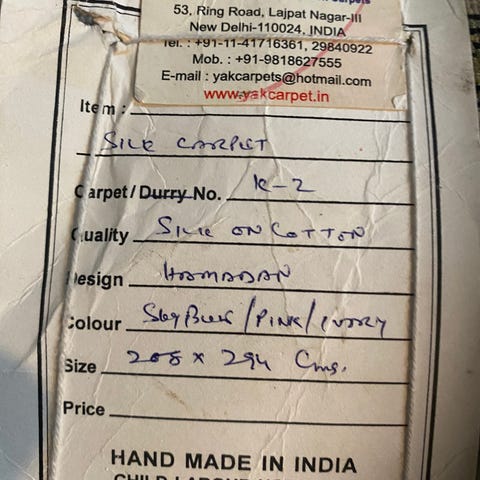 53, Ring Road, Lajpat Nagar-III
New Delhi-110024, INDIA
Tel. : +91-11-41716361, 29840922
Mob. : +91-9818627555
E-mail : yakcarpets@hotmail.com
www.yakcarpet.in
Item :
SILK CARPET
Carpet/Durry No. K-2
Quality SILK ON COTTON
Design HAMADAN
Colour SkyBlue/PINK/IVORY
Size 208 x 294 Cms.
Price
HAND MADE IN INDIA
CHILD LABOUR